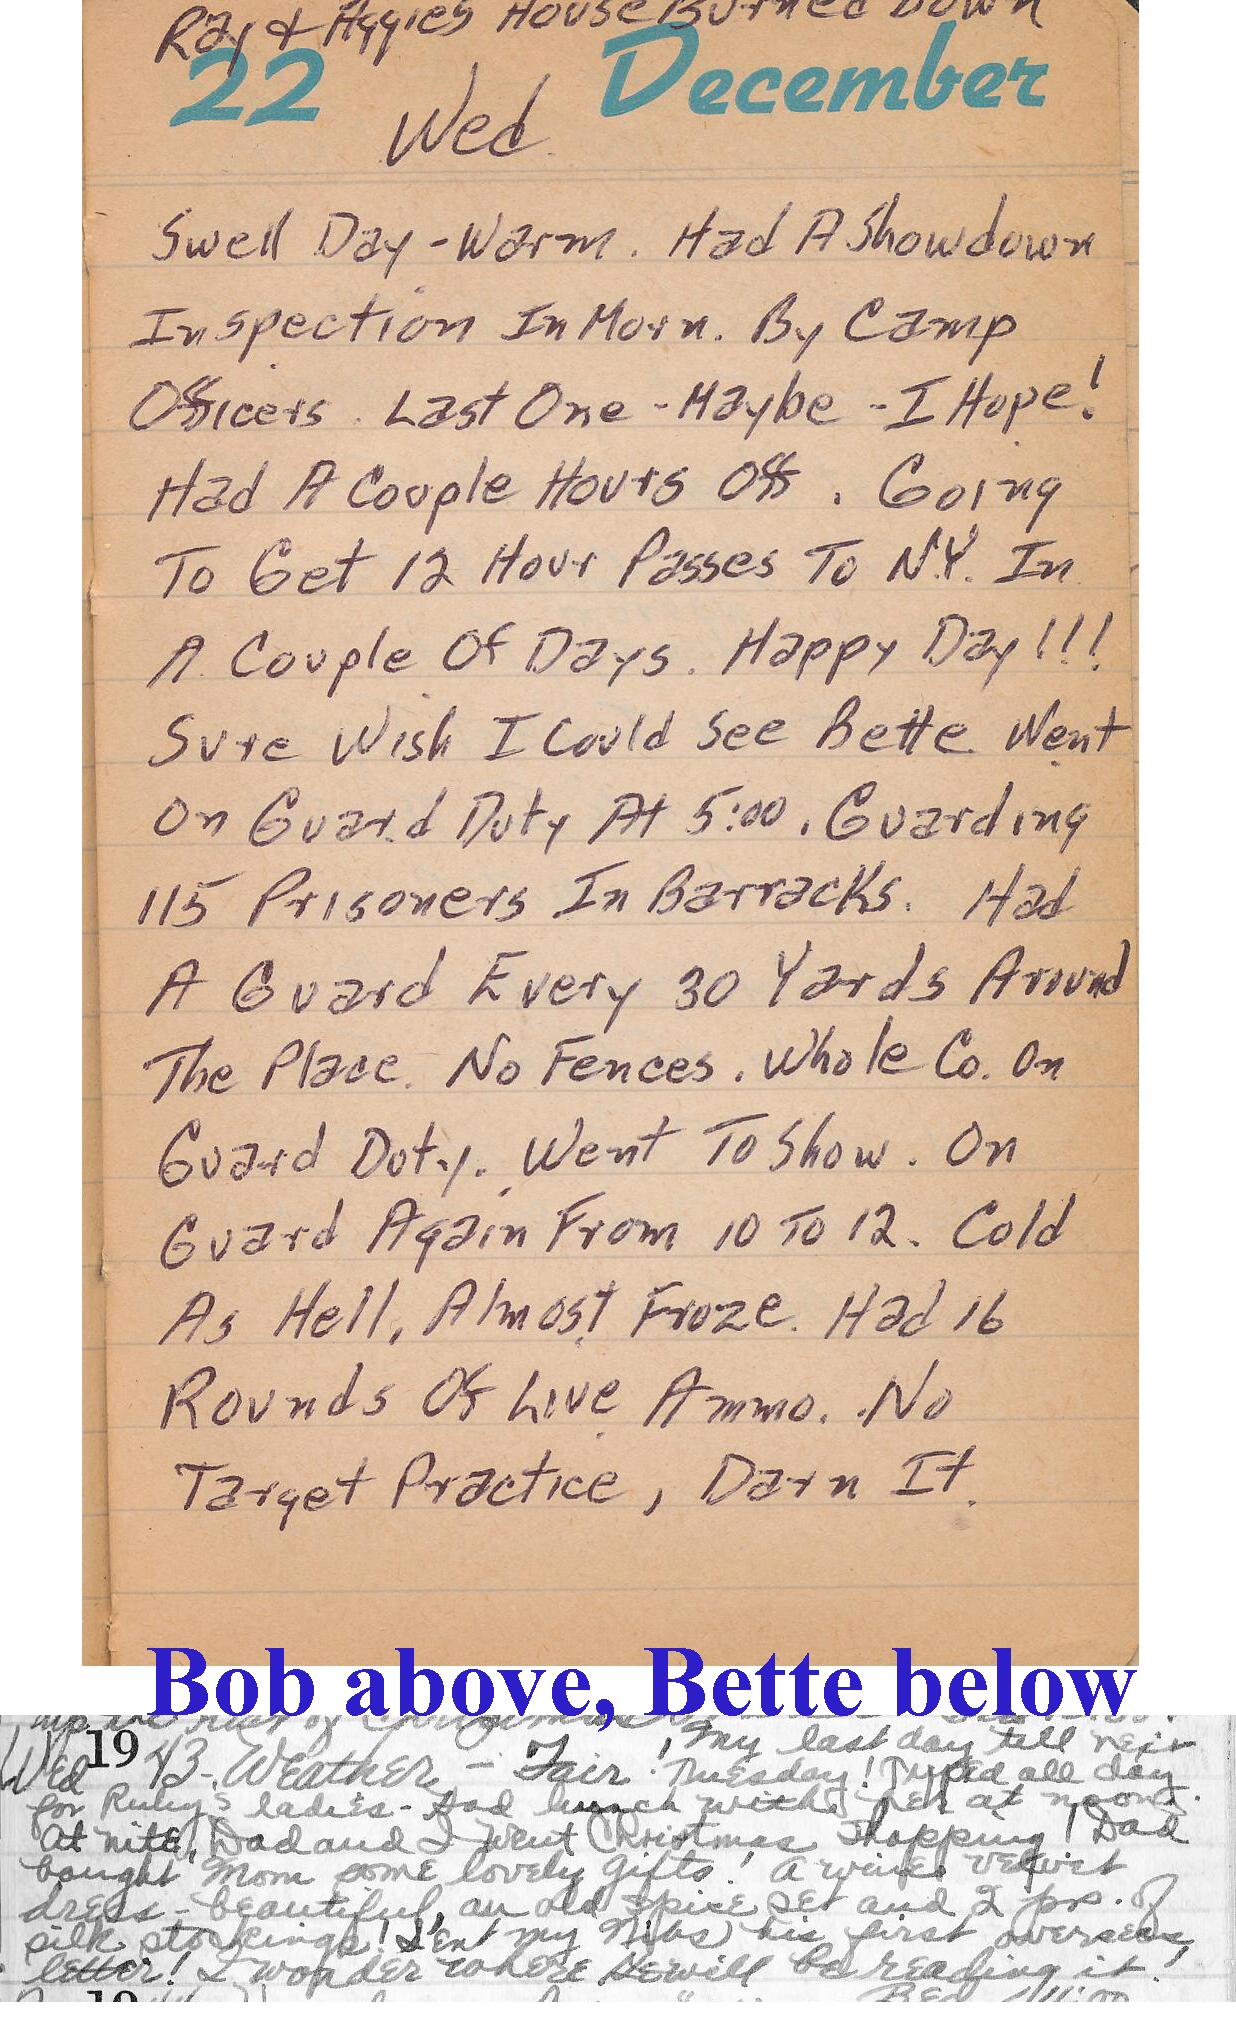 Ray & Aggies House Burned Down
22 December
Wed.
Swell Day - Warm. Had A Showdown
Inspection In Morn. By Camp
Officers. Last One - Maybe - I Hope!
Had A Couple Hours Off. Going
To Get 12 Hour Passes To N.Y. In
A Couple Of Days. Happy Day!!!
Sure Wish I Could See Bette. Went
On Guard Duty At 5:00. Guarding
115 Prisoners In Barracks. Had
A Guard Every 30 Yards Around
The Place. No Fences. Whole Co. On
Guard Duty. Went To Show. On
Guard Again From 10 To 12. Cold
As Hell, Almost Froze. Had 16
Rounds Of Live Ammo. No
Target Practice, Darn It.
Bob above, Bette below
My last day till next
Wed 19 43. Weather - Fair. Tuesday! Typed all day
for Ruby's ladies - Had lunch with her at noon.
At nite, Dad and I went Christmas shopping! Dad
bought Mom some lovely gifts! A wine velvet
dress - beautiful, an old spice set and 2 prs. of
silk stockings! Sent my Nibs his first overseas
letter! I wonder where He will be reading it!
19